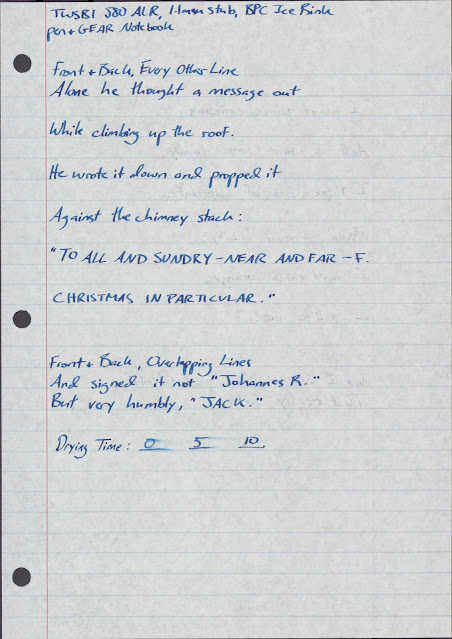 TWSBI 580 ALR, 1.1mm Stub, BPC Ice Rink
pen + GEAR Notebook
Front + Back, Every Other Line
Alone he thought a message out
While climbing up the roof.
He wrote it down and propped it
Against the chimney stack:
"TO ALL AND SUNDRY - NEAR AND FAR - F.
CHRISTMAS IN PARTICULAR."
Front + Back, Overlapping Lines
And signed it not "Johannes R."
But very humbly, "JACK."
Drying Time: 0 5 10